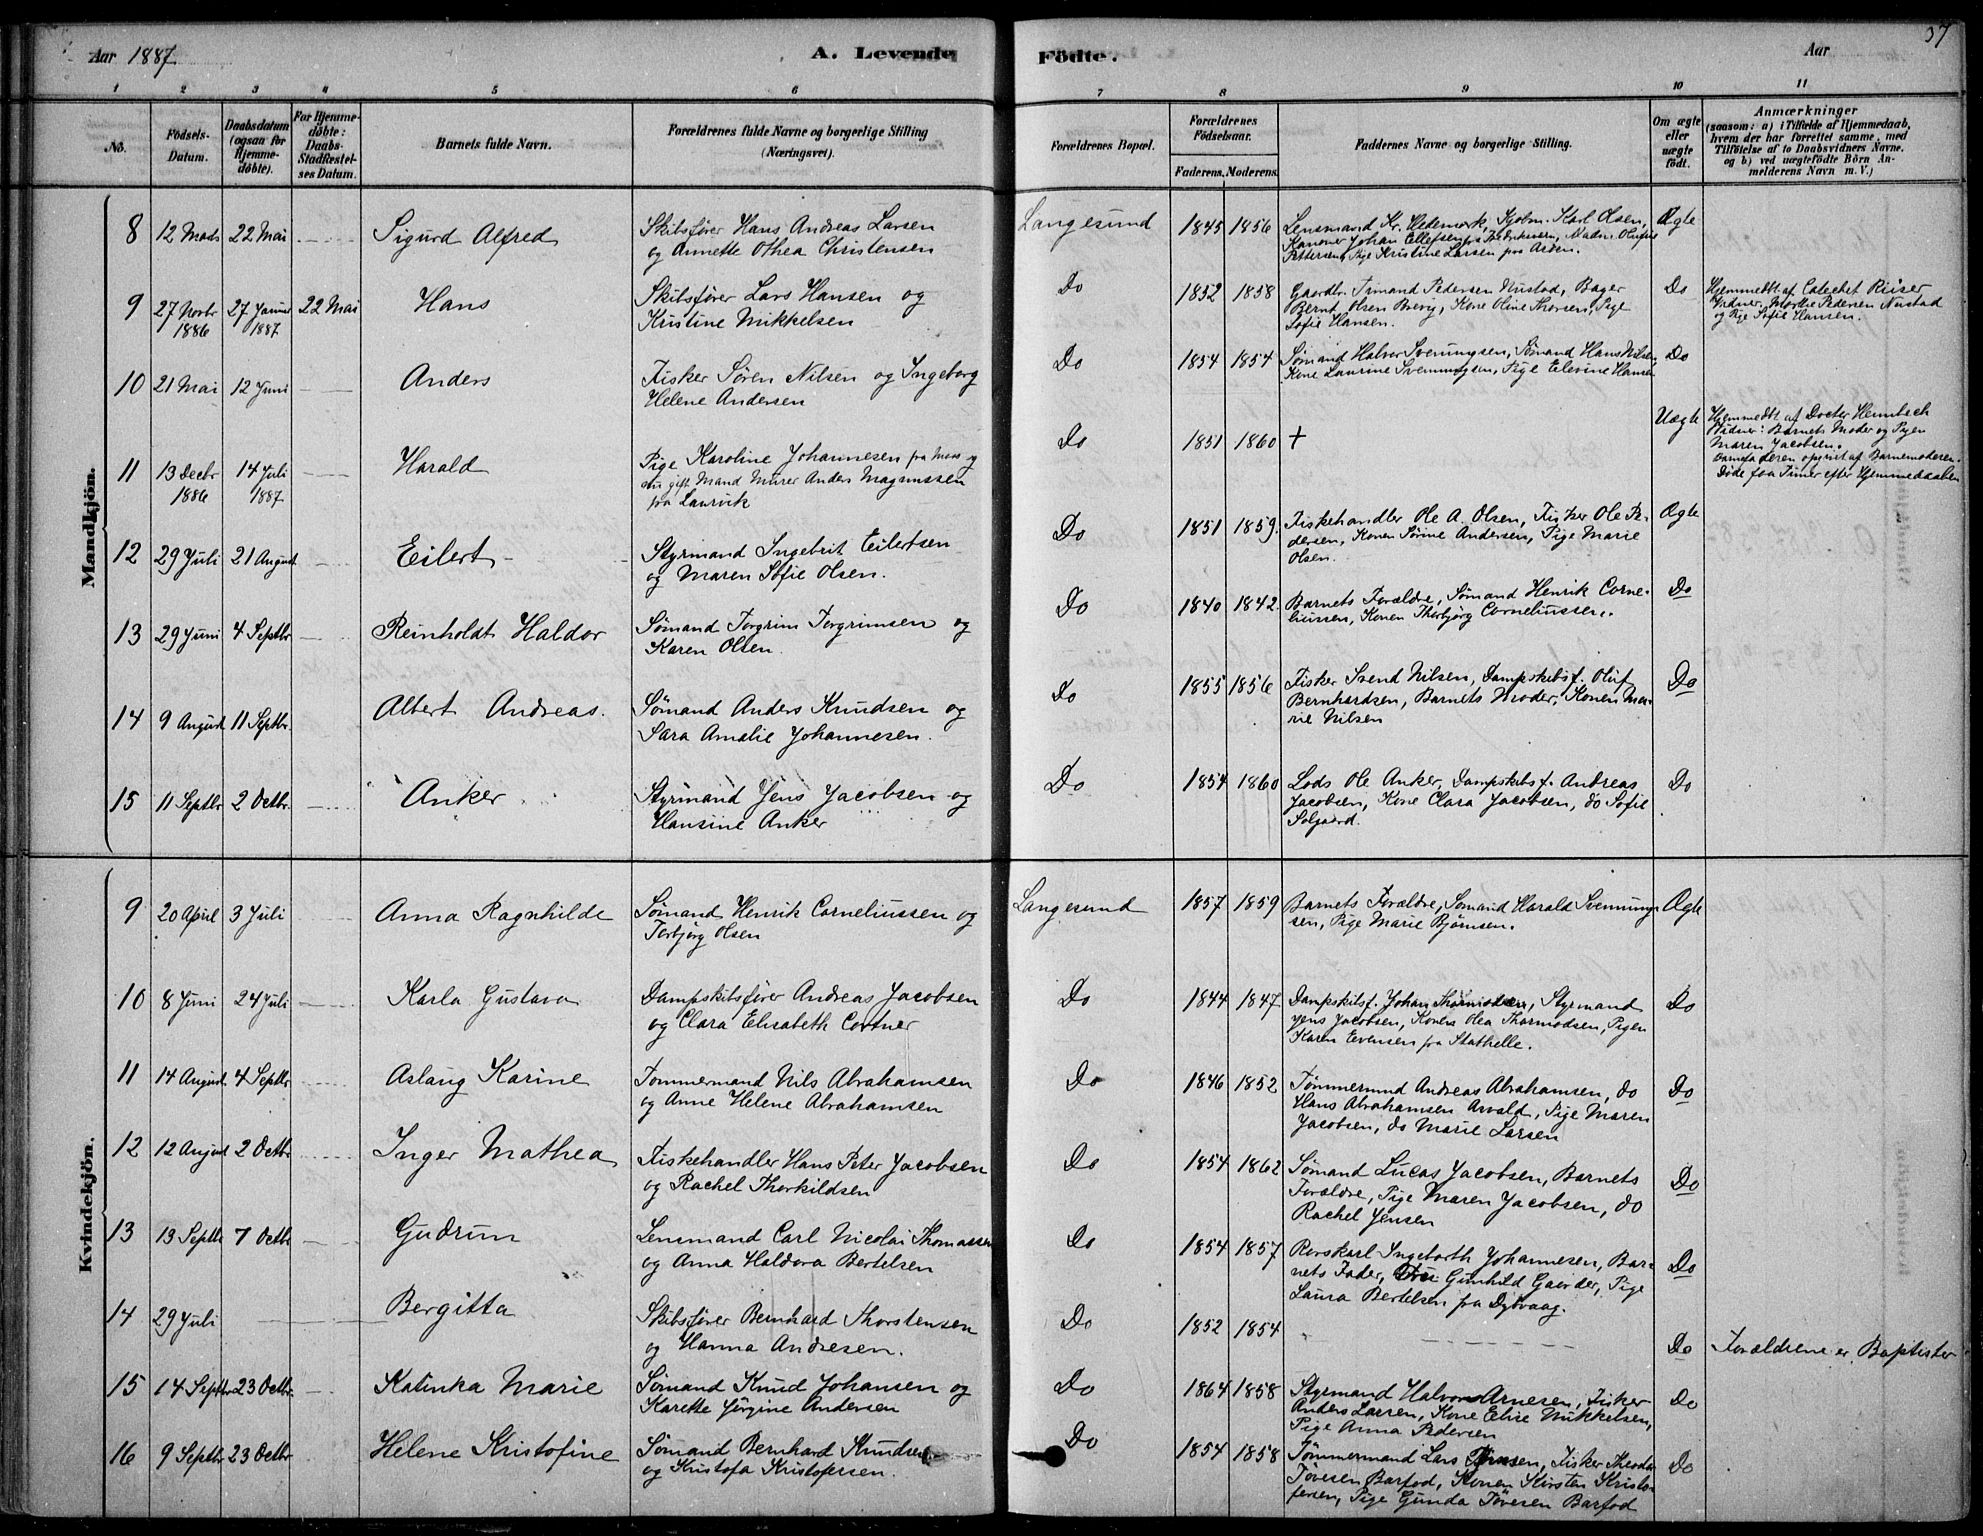 Aar 1887.
A. Levende Födte.
Aar
37
1 2 3 4 5 6 7 8 9 10 11
No.
Födsels-
Datum.
Daabsdatum
(ogsaa for
Hjemme-
döbte).
For Hjemme-
döbte:
Daabs-
Stadfæstel-
ses Datum.
Barnets fulde Navn.
Forældrenes fulde Navne og borgerlige Stilling
(Næringsvei).
Forældrenes Bopæl.
Forældrenes
Födselsaar.
Faderens. Moderens.
Faddernes Navne og borgerlige Stilling.
Om ægte
eller
uægte
födt.
Anmærkninger
(saasom: a) i Tilfælde af Hjemmedaab,
hvem der har forrettet samme, med
Tilföielse af to Daabsvidners Navne.
og b) ved uægtefödte Börn An-
melderens Navn m. V.)
Mandkjön.
8 12 Marts 22 Mai Sigurd Alfred
Skibsfører Hans Andreas Larsen
og Annette Othea Christensen
Langesund 1845 1856
Lensmand Kr. Hedemark, Kjøbm. Karl Olsen,
Konen Johan Ellefsen fra Fredriksværn, Madm. Olufine
Pettersen, Pige Kristine Larsen fra
Ægte
9 27 Novbr 27 Januar 22 Mai Hans
1886 1887
Skibsfører Lars Hansen og
Kristine Mikkelsen
Do 1852 1858
Gaardbr. Simand Pedersen Nustad, Bager
Bernt Olsen Brevig, Kone Oline Thorsen, Pige
Sofie Hansen.
Do
Hjemmedbt af Catechet Riiser
Vidner, Marthe Pedersen Nustad
og Pige Sofie Hansen.
10 21 Mai 12 Juni Anders
Fisker Søren Nilsen og Ingeborg
Helene Andersen
Do 1854 1854
Sømand Halvor Svenningsen, Sømand Hans Nilsen,
Kone Laurine Svenningsen, Pige Elevine Hansen
Do
11 13 Decbr 14 Juli Harald
1886 1887
Pige Karoline Johannesen fra Moss og
gift Mand Murer Anders Magnussen
fra Laurvik
Do 1851 1860 +
Uægte
Hjemmedbt af Doctor Heimbech
Vidner: Barnets Moder og Pigen
Maren Jacobsen.
Barnefaderen opgivet af Barnemoderen.
Døde faa Timer efter Hjemmedaaben
12 29 Juli 21 August Eilert
Styrmand Ingebrit Eilertsen
og Maren Sofie Olsen.
Do 1851 1859.
Fiskehandler Ole A. Olsen, Fisker Ole Pe-
dersen, Konen Sørine Andersen, Pige Marie
Olsen.
Ægte
13 29 Juni 4 Septbr Reinholdt Haldor
Sømand Torgrim Torgrimsen og
Karen Olsen.
Do 1840 1842.
Barnets Forældre, Sømand Henrik Corne-
liussen, Konen Thorbjørg Corneliussen.
Do
14 9 August 11 Septbr. Albert Andreas.
Sømand Anders Knudsen og
Sara Amalie Johannesen.
Do 1855 1856
Fisker Svend Nilsen, Dampskibsf. Oluf
Bernhardsen, Barnets Moder, Konen Ma-
rie Nilsen
Do
15 11 Septbr 2 Octbr. Anker
Styrmand Jens Jacobsen og
Hansine Anker
Do 1854 1860
Lods Ole Anker, Dampskibsf. Andreas
Jacobsen, Kone Clara Jacobsen, do Sofie
Solgaard.
Do
Kvindekjön.
9 20 April 3 Juli Anna Ragnhilde
Sømand Henrik Corneliussen og
Torbjørg Olsen
Langesund 1857 1859
Barnets Forældre, Sømand Harald Svenning-
sen, Pige Marie Bjørnsen.
Ægte
10 8 Juni 24 Juli Karla Gustava
Dampskibsfører Andreas Jacobsen
og Clara Elisabeth Cortner
Do 1844 1847
Dampskibsf. Johan Thormodsen, Styrmand
Jens Jacobsen, Konen Olea Thormodsen, Pigen
Karen Evensen fra Stathelle.
Do
11 14 August 4 Septbr Aslaug Karine
Tømmermand Nils Abrahamsen
og Anne Helene Abrahamsen
Do 1846 1852
Tømmermand Andreas Abrahamsen, do
Hans Abrahamsen Arvald, Pige Maren
Jacobsen, do Marie Larsen
Do
12 12 August 2 Octbr Inger Mathea
Fiskehandler Hans Peter Jacobsen
og Rachel Thorkildsen
Do 1854 1862
Sømand Lucas Jacobsen, Barnets
Forældre, Pige Maren Jacobsen, do
Rachel Jensen
Do
13 13 Septbr 7 Octbr Gudrun
Lensmand Carl Nicolai Thomassen
og Anna Haldora Bertelsen
Do 1854 1857
Rorskarl Ingebarth Johannesen, Bar-
nets Fader, Gunhild Gaarder, Pige
Laura Bertelsen fra Dybvaag.
Do
14 29 Juli Bergitta
Skibsfører Bernhard Thorstensen
og Hanna Andresen.
Do 1852 1854
Do
Forældrene er Baptister
15 14 Septbr 23 Octbr. Katinka Marie
Sømand Knud Johansen og
Karette Jørgine Andersen
Do 1864 1858
Styrmand Halvor Arnesen, Fisker
Anders Larsen, Kone Elise Mikkelsen,
Pige Anna Pedersen
Do
16 9 Septbr 23 Octbr Helene Kristofine
Sømand Bernhard Knudsen
og Kristofa Kristofersen.
Do 1854 1858
Tømmermand Lars Jensen, Fisker Theodor
Tovesen Barfod, Konen Kirsten Kristo-
fersen, Pige Gunda Tovesen Barfod
Do